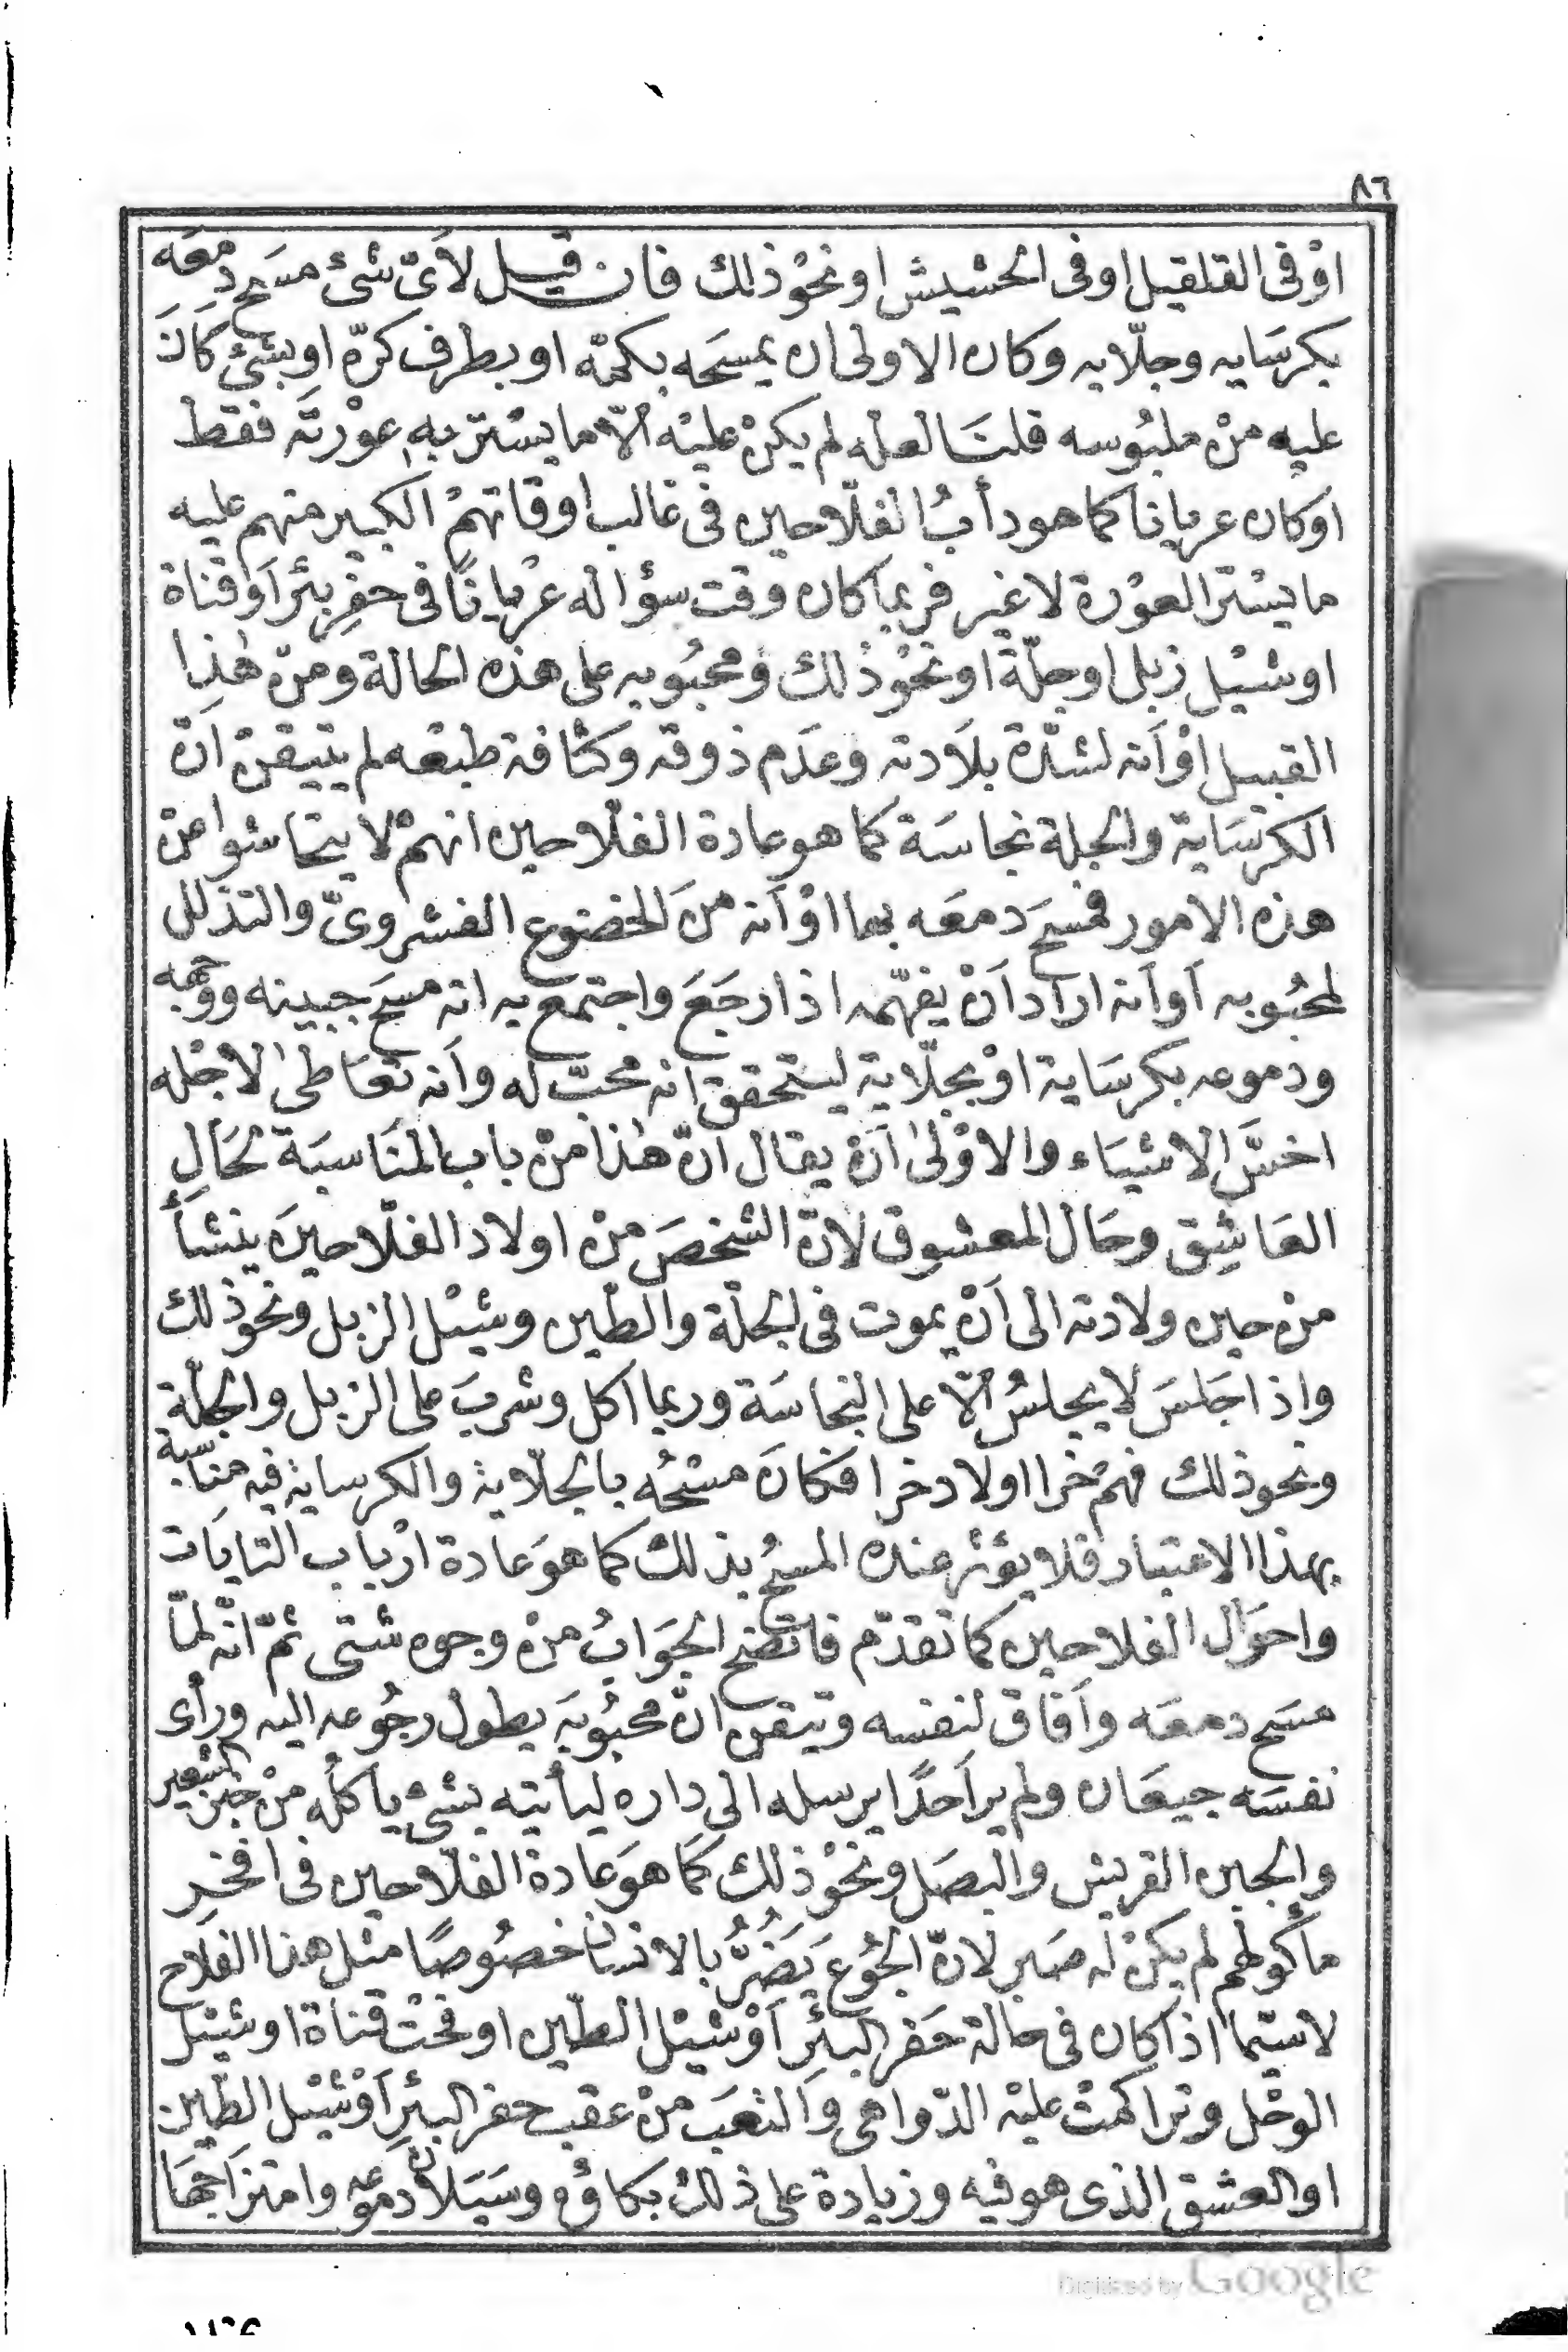 ٨٦
اوْ فى القلقيل او فى الحشيش او نحوْ ذلك فان قيل لأىّ شئ مسَح دمعَه
بكرسَايه وجلّايه وكان الاولى ان يمسَحه بكمّه او بطرف كرّه او بشئ كانَ
عليه منْ ملبُوسه قلنَا لعله لم يكنْ عليْه الّا ما يسْتر به عوْرتَه فقط
او كان عريانا كما هو دأبُ الفلّاحين فى غالب اوقاتهمْ الكبير منهم عليه
ما يسْتر العوْرة لا غير فربما كان وقت سؤاله عرْيانًا فى حفرِ بئر اَو قناة
او شيْل زبل او جلّة او نحوْ ذلك ومحبُوبه على هذه الحالة ومنْ هٰذا
القبيل اوْ اَنه لشدّة بلَادته وعدَم ذوقه وكثافة طبْعه لم يتيقنْ انّ
الكرْسَاية والجلة نجاسَة كما هو عادة الفلّاحين انهمْ لا يتحاشوا عنْ
هذه الامور فمسحَ دمعَه بها اوْ اَنه منَ الخضوع الفشروىّ والتذلل
لمحبُوبه اَو اَنه ارَاد اَنْ يفهّمه اذا رجَعَ واجتمع به انه مسَح جبينه ووجهه
ودموعه بكرسَاية اوْ بجلّاية ليتحقق انه محبّ له واَنه تعَاطىٰ لاجْله
اخسَّ الاشيَاء والاوْلىٰ اَنْ يقال انّ هٰذا منْ باب المنَاسبَة لحَالِ
العَاشِق وحَال المعشوق لانّ الشخصَ منْ اولاد الفلّاحينَ ينشأُ
منْ حين ولادته الى اَنْ يموت فى الجلّة والطّين وشيْل الزبل ونحوْ ذلك
واذا جَلسَ لا يجلسُ الّا على النجاسَة وربما اكل وشربَ على الزبل والجلّة
ونحو ذلك فهمْ خرا اولاد خرا فكانَ مسْحُه بالجلّاية والكرساية فيه مناسبة
بهذا الاعتبار فلا يؤثر عنده المسحُ بذلك كما هوَ عادة ارْباب التايَات
واحوَال الفلاحين كما تقدّم فاتضح الجوَابُ منْ وجوه شتى ثمّ انّه لمّا
مسَح دمعَه واَفاق لنفسه وتيقن انّ محبُوبَه يطول رجُوعه اليه ورأى
نفسَه جيعَان ولم ير اَحدًا يرسله الى داره ليأتيه بشئْ يأكلُه منْ خبز الشعير
والجبن القريش والبصَل ونحوْ ذلك كمَا هوَ عَادة الفلّاحين فى افخر
مأكولهم لم يكنْ له صَبر لانّ الجُوعَ يَضُرُّ بالانسان خصُوصًا مثل هذا الفلاح
لاسيّما اذا كان فى حالة حَفر البئرِ اَوْ شيْل الطّين او فحْت قناة او شيْل
الوحْل وتراكمتْ عليْه الدّواهى والتعَب منْ عقب حفر البئر اَوْ شيْل الطّين
او العشق الذى هو فيه وزيادة على ذلك بكاؤه وسَيَلانُ دموعه وامتزاجهَا
Digitized by Google